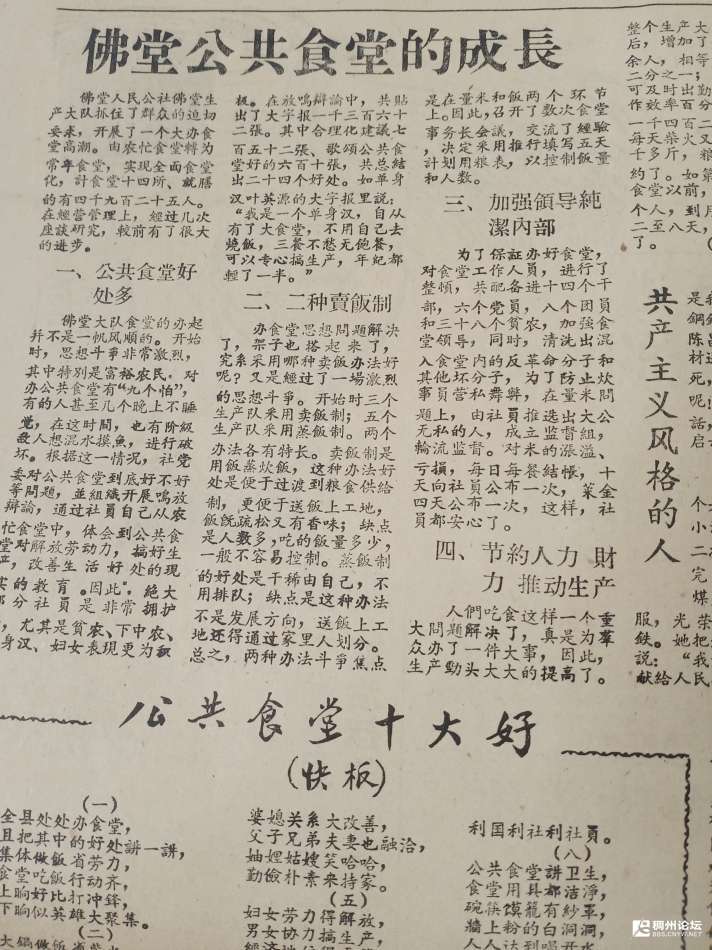 佛堂公共食堂的成長
佛堂人民公社佛堂生
产大队抓住了群众的迫切
要求，开展了一个大办食
堂高潮。由农忙食堂轉为
常年食堂，实现全面食堂
化，計食堂十四所、就膳
的有四千九百二十五人。
在經营管理上，經过几次
座談研究，較前有了很大
的进步。
一、公共食堂好
处多
佛堂大队食堂的办起
并不是一帆风順的。开始
时，思想斗爭非常激烈，
其中特別是富裕农民，对
办公共食堂有“九个怕”，
有的人甚至几个晚上不睡
覺，在这时間，也有阶級
敌人想混水摸魚，进行破
坏。根据这一情况，社党
委对公共食堂到底好不好
等問題，並組織开展鳴放
辯論，通过社員自己从农
忙食堂中，体会到公共食
堂对解放劳动力，搞好生
产，改善生活好处的现
实的教育。因此，絕大
部分社員是非常拥护
，尤其是貧农、下中农、
身汉、妇女表现更为积
极。在放鳴辯論中，共貼
出了大字报一千三百六十
二張。其中合理化建議七
百五十二張、歌頌公共食
堂好的六百十張，共总結
出二十四个好处。如单身
汉叶英源的大字报里說：
“我是一个单身汉，自从
有了大食堂，不用自己去
燒飯，三餐不愁无饱餐，
可以专心搞生产，年紀都
輕了一半。”
二、二种賣飯制
办食堂思想問題解决
了，架子也搭起来了，
究系采用哪种卖飯办法好
呢？又是經过了一場激烈
的思想斗爭。开始时三个
生产队采用卖飯制；五个
生产队采用蒸飯制。两个
办法各有特长。卖飯制是
用飯蒸炊飯，这种办法好
处是便于过渡到粮食供給
制，更便于送飯上工地，
飯旣疏松又有香味；缺点
是人数多，吃的飯量多少，
一般不容易控制。蒸飯制
的好处是干稀由自己，不
用排队；缺点是这种办法
不是发展方向，送飯上工
地还得通过家里人划分。
总之，两种办法斗爭焦点
是在量米和飯两个环节
上。因此，召开了数次食堂
事务长会議，交流了經驗
，决定采用推行填写五天
計划用粮表，以控制飯量
和人数。
三、加强領导純
潔內部
为了保証办好食堂，
对食堂工作人員，进行了
整頓，共配备进十四个干
部，六个党員，八个团員
和三十八个貧农，加强食
堂領导，同时，清洗出混
入食堂內的反革命分子和
其他坏分子，为了防止炊
事員营私舞弊，在量米問
題上，由社員推选出大公
无私的人，成立监督組，
輪流监督。对米的涨溢、
亏損，每日每餐結帳，十
天向社員公布一次，菜金
四天公布一次，这样，社
員都安心了。
四、节約人力 財
力 推动生产
人們吃食这样一个重
大問題解决了，真是为羣
众办了一件大事，因此，
生产勁头大大的提高了。
整个生产大
后，增加了
余人，相等
二分之一；
可及时出勤
作效率百分
一千四百二
每天柴火又
千多斤，粮
約了。如第
食堂以前，
个人，到用
二至八天，
了。
共产主义风格的人
是我
鋼鉄
陈昌
材进
死，
呢！
話，
启
个
小
二
完
煤
服，光荣
鉄。她把
說：“我
献給人民
公共食堂十大好
（快板）
（一）
全县处处办食堂，
且把其中的好处讲一讲，
集体做飯省劳力，
食堂吃飯行动齐，
上晌好比打冲鋒，
下晌似英雄大聚集。
（二）
大鍋做飯省柴火
婆媳关系大改善，
父子兄弟夫妻也融洽，
妯娌姑嫂笑哈哈，
勤儉朴素来持家。
（五）
妇女劳力得解放，
男女协力搞生产，
利国利社利社員。
（八）
公共食堂讲卫生，
食堂用具都洁淨，
碗筷饃籠有紗罩，
牆上粉的白洞洞，
人人达到喝开水
稠州论坛
BBS.CNYW.NET